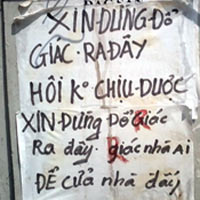 XIN-DỪNG-ĐỔ
GIÁC-RA-ĐÂY
HÔI K° CHỊU-ĐƯỢC
XIN-DỪNG Đổ Giác
Ra đây. giác nhà Ai
ĐỂ CỬA nhà đấy